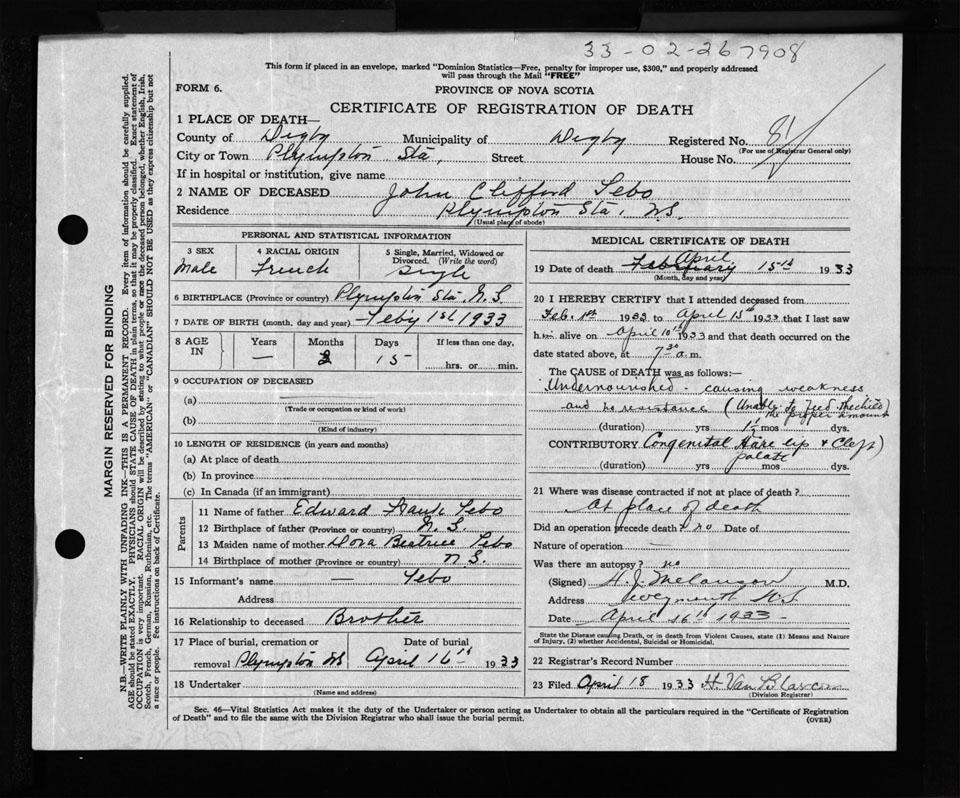 33-02-267908
This form if placed in an envelope, marked "Dominion Statistics—Free, penalty for improper use, $300," and properly addressed
will pass through the Mail "FREE"
FORM 6.
PROVINCE OF NOVA SCOTIA
CERTIFICATE OF REGISTRATION OF DEATH
1 PLACE OF DEATH—
County of Digby Municipality of Digby Registered No. 81
(For use of Registrar General only)
City or Town Plympton Sta, Street House No.
If in hospital or institution, give name
2 NAME OF DECEASED John Clifford Tebo
Residence Plympton Sta, NS.
(Usual place of abode)
PERSONAL AND STATISTICAL INFORMATION
3 SEX 4 RACIAL ORIGIN 5 Single, Married, Widowed or
Divorced. (Write the word)
Male French Single
6 BIRTHPLACE (Province or country) Plympton Sta. N.S.
7 DATE OF BIRTH (month, day and year) Feby 1st 1933
8 AGE IN Years — Months 2 Days 15 If less than one day,
hrs. or min.
9 OCCUPATION OF DECEASED
(a)
(Trade or occupation or kind of work)
(b)
(Kind of industry)
10 LENGTH OF RESIDENCE (in years and months)
(a) At place of death
(b) In province
(c) In Canada (if an immigrant)
Parents
11 Name of father Edward Frank Tebo
12 Birthplace of father (Province or country) N.S.
13 Maiden name of mother Dora Beatrice Tebo
14 Birthplace of mother (Province or country) N.S.
15 Informant's name — Tebo
Address
16 Relationship to deceased Brother
17 Place of burial, cremation or Date of burial
removal Plympton NS April 16th 1933
18 Undertaker
(Name and address)
MEDICAL CERTIFICATE OF DEATH
April
19 Date of death February 15th 1933
(Month, day and year)
20 I HEREBY CERTIFY that I attended deceased from
Feb. 1st 1933 to April 15th 1933 that I last saw
him alive on April 10th 1933 and that death occurred on the
date stated above, at 7 30 a.m.
The CAUSE of DEATH was as follows:—
Undernourished - causing weakness
and no resistance (Unable to feed the child
the proper amount
(duration) yrs 1½ mos dys.
CONTRIBUTORY Congenital Hare lip & Cleft)
palate
(duration) yrs mos dys.
21 Where was disease contracted if not at place of death?
At place of death
Did an operation precede death? no Date of
Nature of operation —
Was there an autopsy? no
(Signed) H. J. Melanson M.D.
Address Weymouth N.S.
Date April 16th 1933
State the Disease causing Death, or in death from Violent Causes, state (1) Means and Nature
of Injury, (2) whether Accidental, Suicidal or Homicidal.
22 Registrar's Record Number
23 Filed April 18 1933 H. Van Blarcom
(Division Registrar)
Sec. 46—Vital Statistics Act makes it the duty of the Undertaker or person acting as Undertaker to obtain all the particulars required in the "Certificate of Registration
of Death" and to file the same with the Division Registrar who shall issue the burial permit.
(OVER)
MARGIN RESERVED FOR BINDING
N.B.—WRITE PLAINLY WITH UNFADING INK—THIS IS A PERMANENT RECORD. Every item of information should be carefully supplied.
AGE should be stated EXACTLY. PHYSICIANS should STATE CAUSE OF DEATH in plain terms, so that it may be properly classified. Exact statement of
OCCUPATION is very important. RACIAL ORIGIN will be described by stating to what people or race the deceased person belonged, whether English, Irish,
Scotch, French, German, Russian, Ruthenian, etc. The terms "AMERICAN" or "CANADIAN" SHOULD NOT BE USED as they express citizenship but not
a race or people. Fee instructions on back of Certificate.